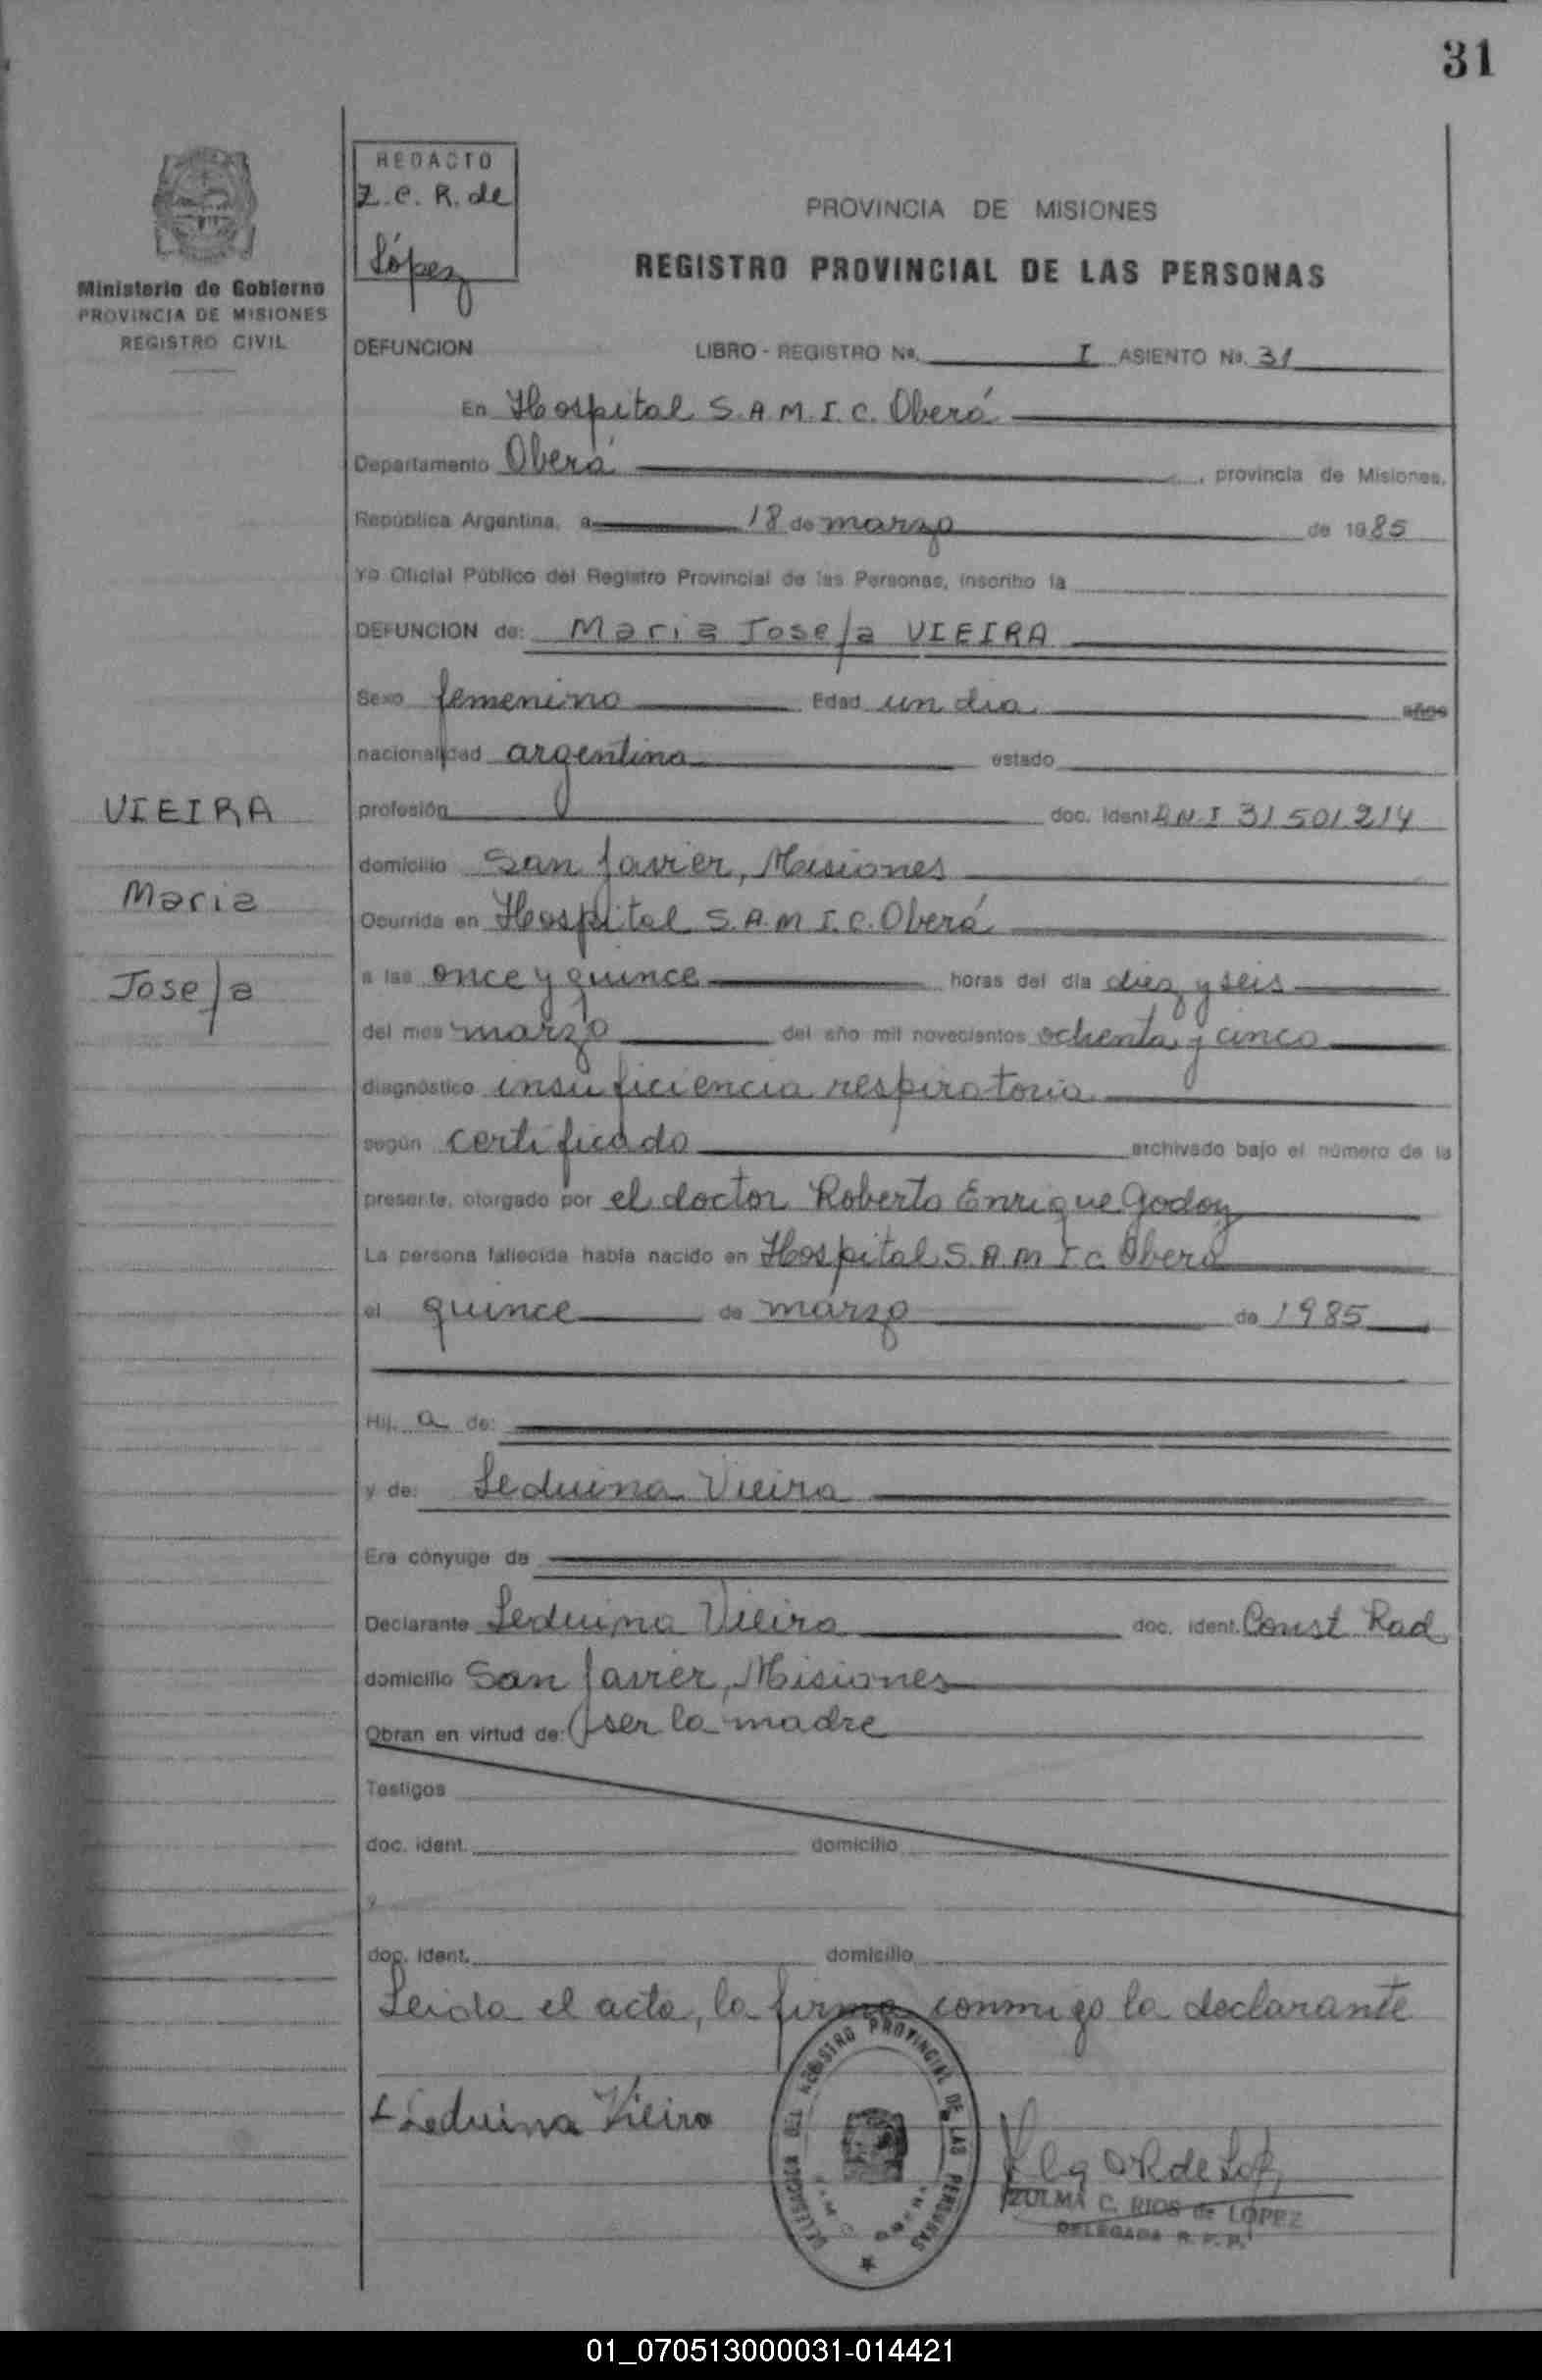 31
REDACTO
Z. C. R. de
López
Ministerio de Gobierno
PROVINCIA DE MISIONES
REGISTRO CIVIL
PROVINCIA DE MISIONES
REGISTRO PROVINCIAL DE LAS PERSONAS
DEFUNCION LIBRO - REGISTRO No. I ASIENTO No. 31
En Hospital S.A.M.I.C. Oberá
Departamento Oberá, provincia de Misiones,
República Argentina, a 18 de marzo de 1985
Yo Oficial Público del Registro Provincial de las Personas, inscribo la
DEFUNCION de: Maria Josefa VIEIRA
Sexo femenino Edad un dia años
nacionalidad argentina estado
profesión doc. ident. D N I 31 501 214
domicilio San Javier, Misiones
Ocurrida en Hospital S.A.M.I.C. Oberá
a las once y quince horas del día diez y seis
del mes marzo del año mil novecientos ochenta y cinco
diagnóstico insuficiencia respiratoria
según certificado archivado bajo el número de la
presente, otorgado por el doctor Roberto Enrique Godoy
La persona fallecida había nacido en Hospital S.A.M.I.C. Oberá
el quince de marzo de 1985
VIEIRA
Maria
Josefa
Hij a de:
y de: Leduina Vieira
Era cónyuge de
Declarante Leduina Vieira doc. ident. Const Rad
domicilio San Javier, Misiones
Obran en virtud de: ser la madre
Testigos
doc. ident. domicilio
y
doc. ident. domicilio
Leida el acta, la firma conmigo la declarante
Leduina Vieira
DELEGACION DEL REGISTRO PROVINCIAL DE LAS PERSONAS
ZULMA C. RIOS de LOPEZ
DELEGADA R. P. P.
01_070513000031-014421